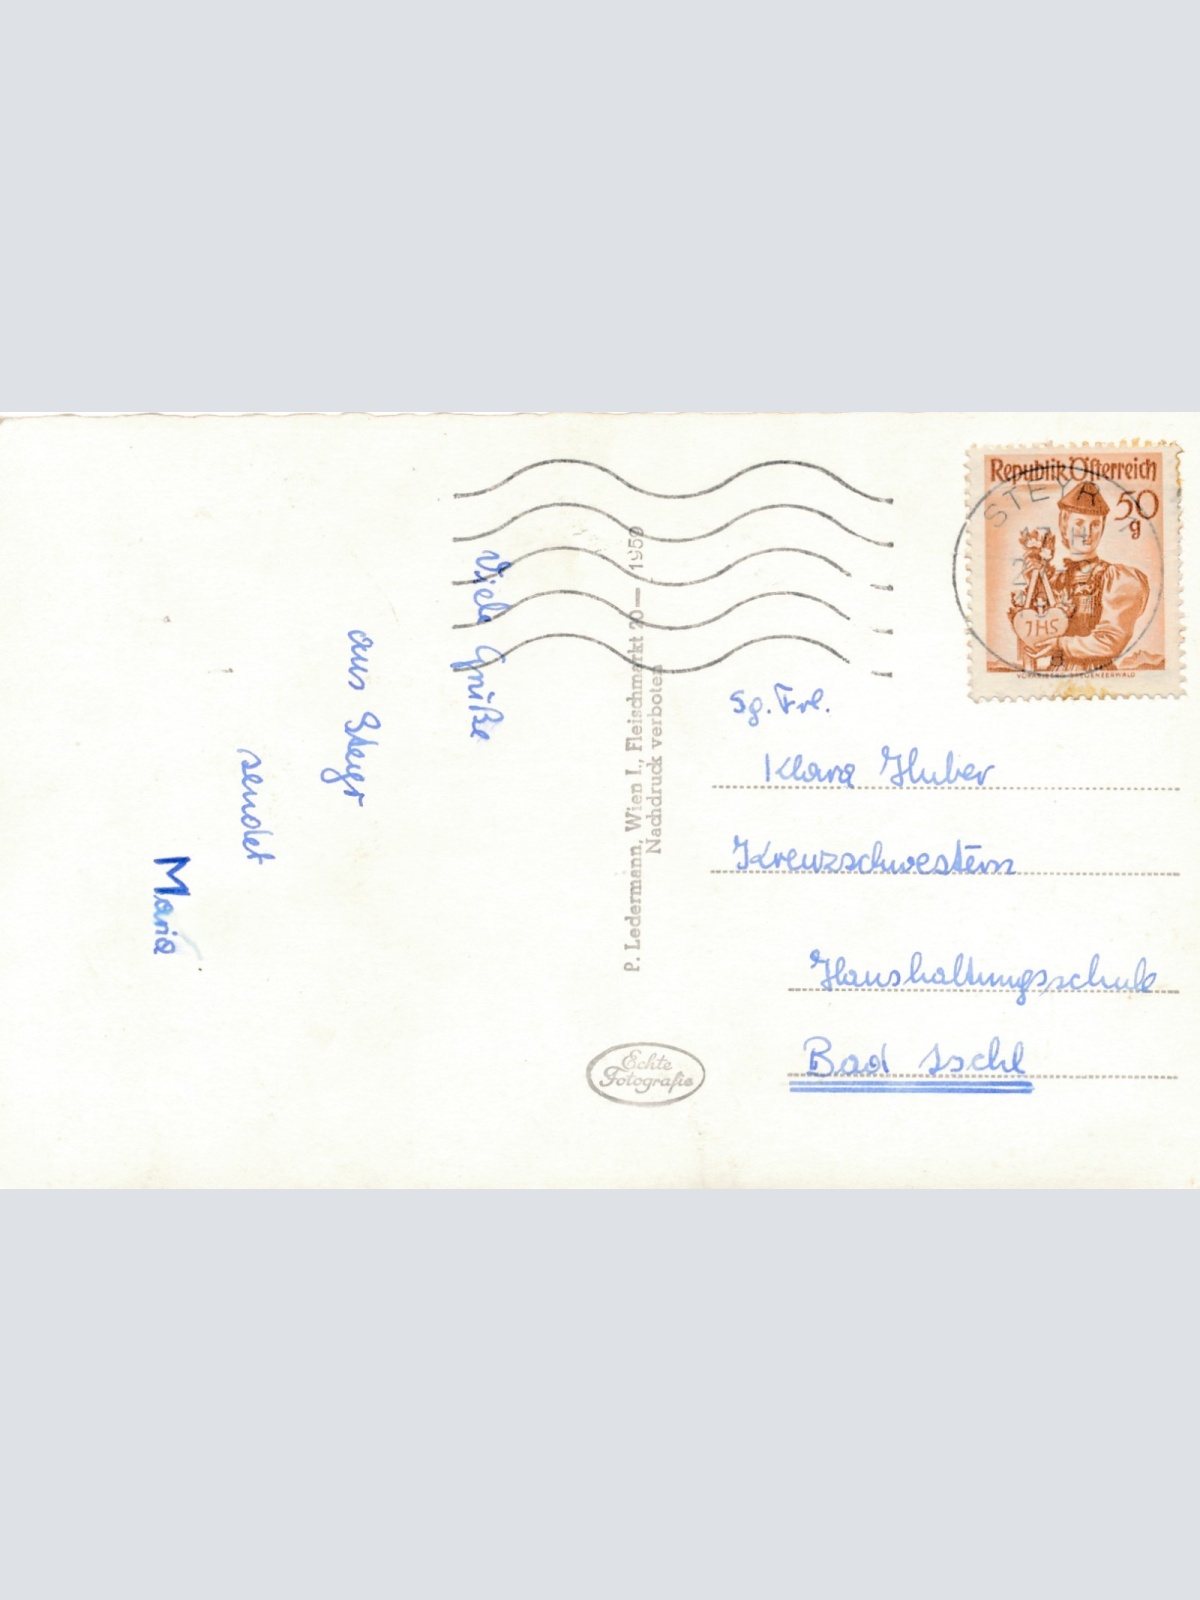 Viele Grüße
aus Steyr
sendet
Maria
P. Ledermann, Wien I., Fleischmarkt 20— 1959
Nachdruck verboten
Echte
Fotografie
Republik Österreich
50
g
STEYR
JHS
VORARLBERG BREGENZERWALD
Sg. Frl.
Klara Huber
Kreuzschwestern
Haushaltungsschule
Bad Ischl